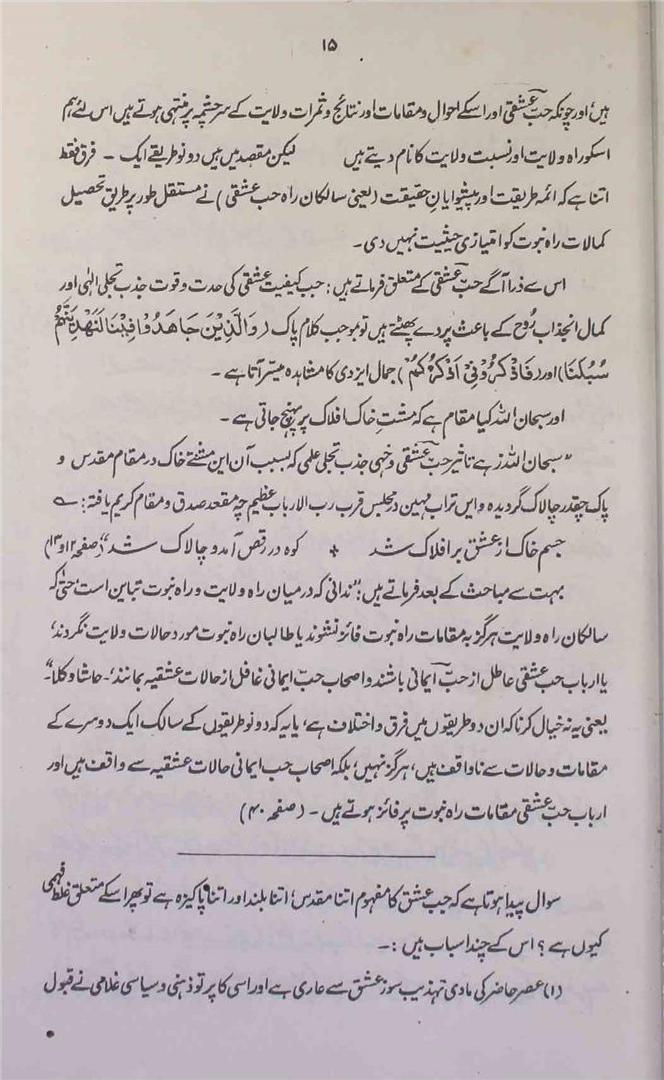 ۱۵
ہیں، اور چونکہ حب عشقی اور اسکے احوال و مقامات اور نتائج و ثمرات ولایت کے سرچشمہ پر منتہی ہوتے ہیں اس لئے ہم
اسکو راہ ولایت اور نسبت ولایت کا نام دیتے ہیں لیکن مقصد میں ہیں دونو طریقے ایک ۔ فرق فقط
اتنا ہے کہ ائمہ طریقت اور پیشوایانِ حقیقت (یعنی سالکان راہ حب عشقی) نے مستقل طور پر طریق تحصیل
کمالات راہ نبوت کو امتیازی حیثیت نہیں دی۔
اس سے ذرا آگے حبّ عشقی کے متعلق فرماتے ہیں: جب کیفیت عشقی کی حدت و قوت جذب تجلی الٰہی اور
کمال انجذاب رُوح کے باعث پردے پھٹتے ہیں تو بموجب کلام پاک (وَالَّذِیْنَ جَاھَدُوْا فِیْنَا لَنَھْدِیَنَّھُمْ
سُبُلَنَا) اور (فَاذْکُرُوْنِیْ اَذْکُرْکُمْ) جمال ایزدی کا مشاہدہ میسّر آتا ہے ۔
اور سبحان اللہ کیا مقام ہے کہ مشتِ خاک افلاک پر پہنچ جاتی ہے ۔
”سبحان اللہ زہے تاثیر حبّ عشقی و خہی جذب تجلی علمی کہ بسبب آن این مشتے خاک در مقام مقدس و
پاک چقدر چالاک گردیدہ و ایں تراب مہین در مجلس قرب رب الارباب عظیم چہ مقعد صدق و مقام کریم یافتہ: ؎
جسم خاک از عشق بر افلاک شد + کوہ در رقص آمد و چالاک شد“ (صفحہ ۱۲ و ۱۳)
بہت سے مباحث کے بعد فرماتے ہیں: ”ندانی کہ درمیان راہ ولایت و راہ نبوت تباین است‘ حتیٰ کہ
سالکان راہ ولایت ہرگز بہ مقامات راہ نبوت فائز نشوند یا طالبان راہ نبوت مورد حالات ولایت نگردند‘
یا ارباب حب عشقی عاطل از حبّ ایمانی باشند و اصحاب حبّ ایمانی غافل از حالات عشقیہ بمانند‘۔ حاشا و کلا“۔
یعنی یہ نہ خیال کرنا کہ ان دو طریقوں میں فرق و اختلاف ہے، یا یہ کہ دونو طریقوں کے سالک ایک دوسرے کے
مقامات و حالات سے ناواقف ہیں، ہرگز نہیں، بلکہ اصحاب حب ایمانی حالات عشقیہ سے واقف ہیں اور
ارباب حبّ عشقی مقامات راہ نبوت پر فائز ہوتے ہیں ۔ (صفحہ ۴۰)
سوال پیدا ہوتا ہے کہ جب عشق کا مفہوم اتنا مقدس، اتنا بلند اور اتنا پاکیزہ ہے تو پھر اسکے متعلق غلط فہمی
کیوں ہے؟ اس کے چند اسباب ہیں :۔
(۱) عصر حاضر کی مادی تہذیب سوز عشق سے عاری ہے اور اسی کا پرتو ذہنی و سیاسی غلامی نے قبول